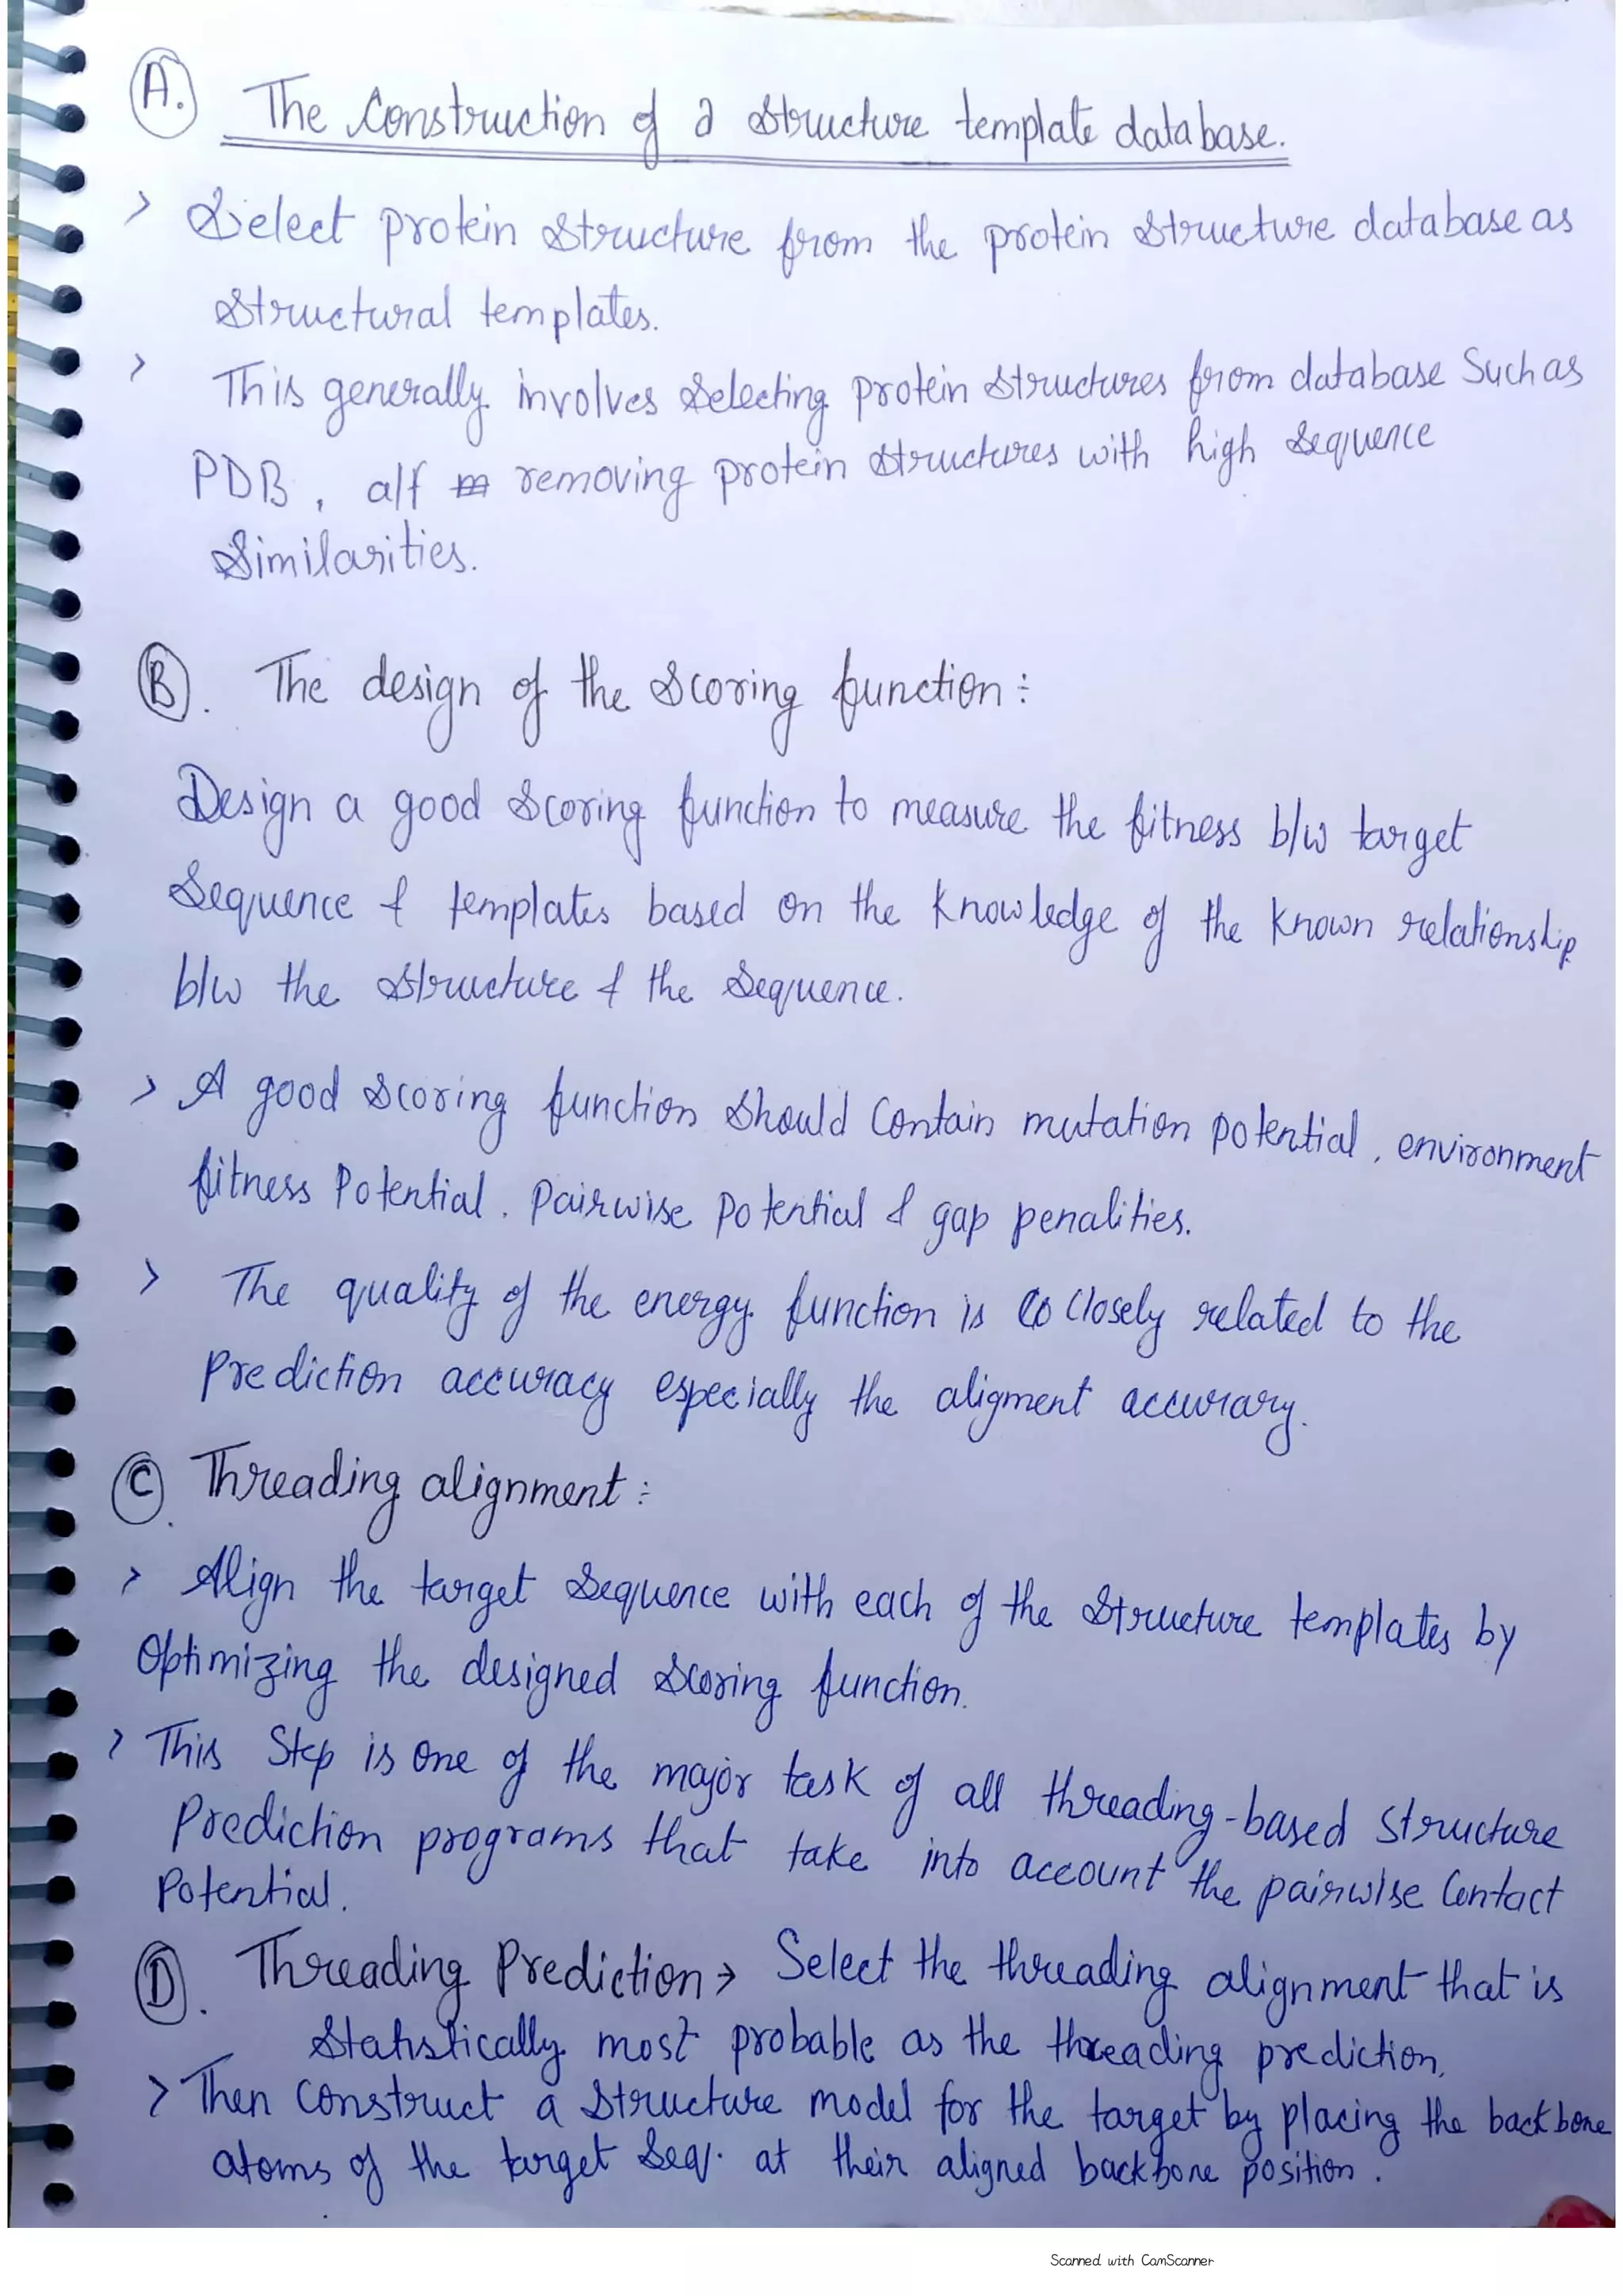 A. The Construction of a Structure template database.
> Select protein structure from the protein structure database as
structural templates.
> This generally involves selecting protein structures from database Such as
PDB, a/f removing protein structures with high sequence
Similarities.
B. The design of the Scoring function:
Design a good scoring function to measure the fitness b/w target
Sequence & templates based on the knowledge of the known relationship
b/w the structure & the sequence.
> A good scoring function should Contain mutation potential, environment
fitness Potential. Pairwise Potential & gap penalities.
> The quality of the energy function is closely related to the
Prediction accuracy especially the aligment accurary.
C. Threading alignment:
> Align the target Sequence with each of the structure templates by
Optimizing the designed scoring function.
> This Step is one of the major task of all threading-based structure
Prediction programs that take into account the pairwise Contact
Potential.
D. Threading Prediction → Select the threading alignment that is
statistically most probable as the threading prediction.
> Then Construct a structure model for the target by placing the backbone
atoms of the target seq. at their aligned backbone position.
Scanned with CamScanner